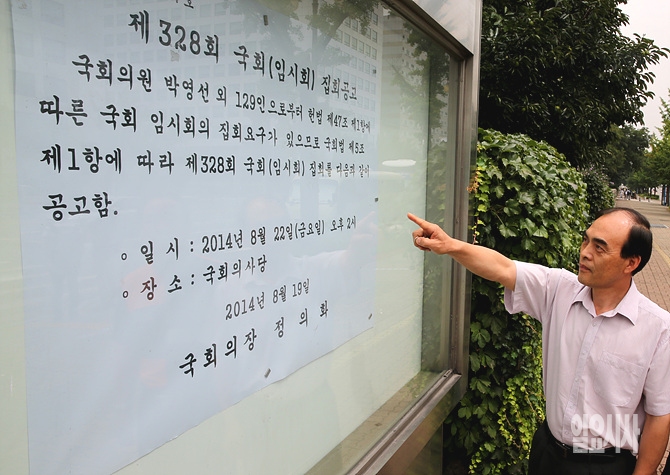 제328회 국회(임시회) 집회공고
국회의원 박영선 외 129인으로부터 헌법 제47조 제1항에
따른 국회 임시회의 집회요구가 있으므로 국회법 제5조
제1항에 따라 제328회 국회(임시회) 집회를 다음과 같이
공고함.
○ 일 시 : 2014년 8월 22일(금요일) 오후 2시
○ 장 소 : 국회의사당
2014년 8월 19일
국회의장 정의화
일요시사